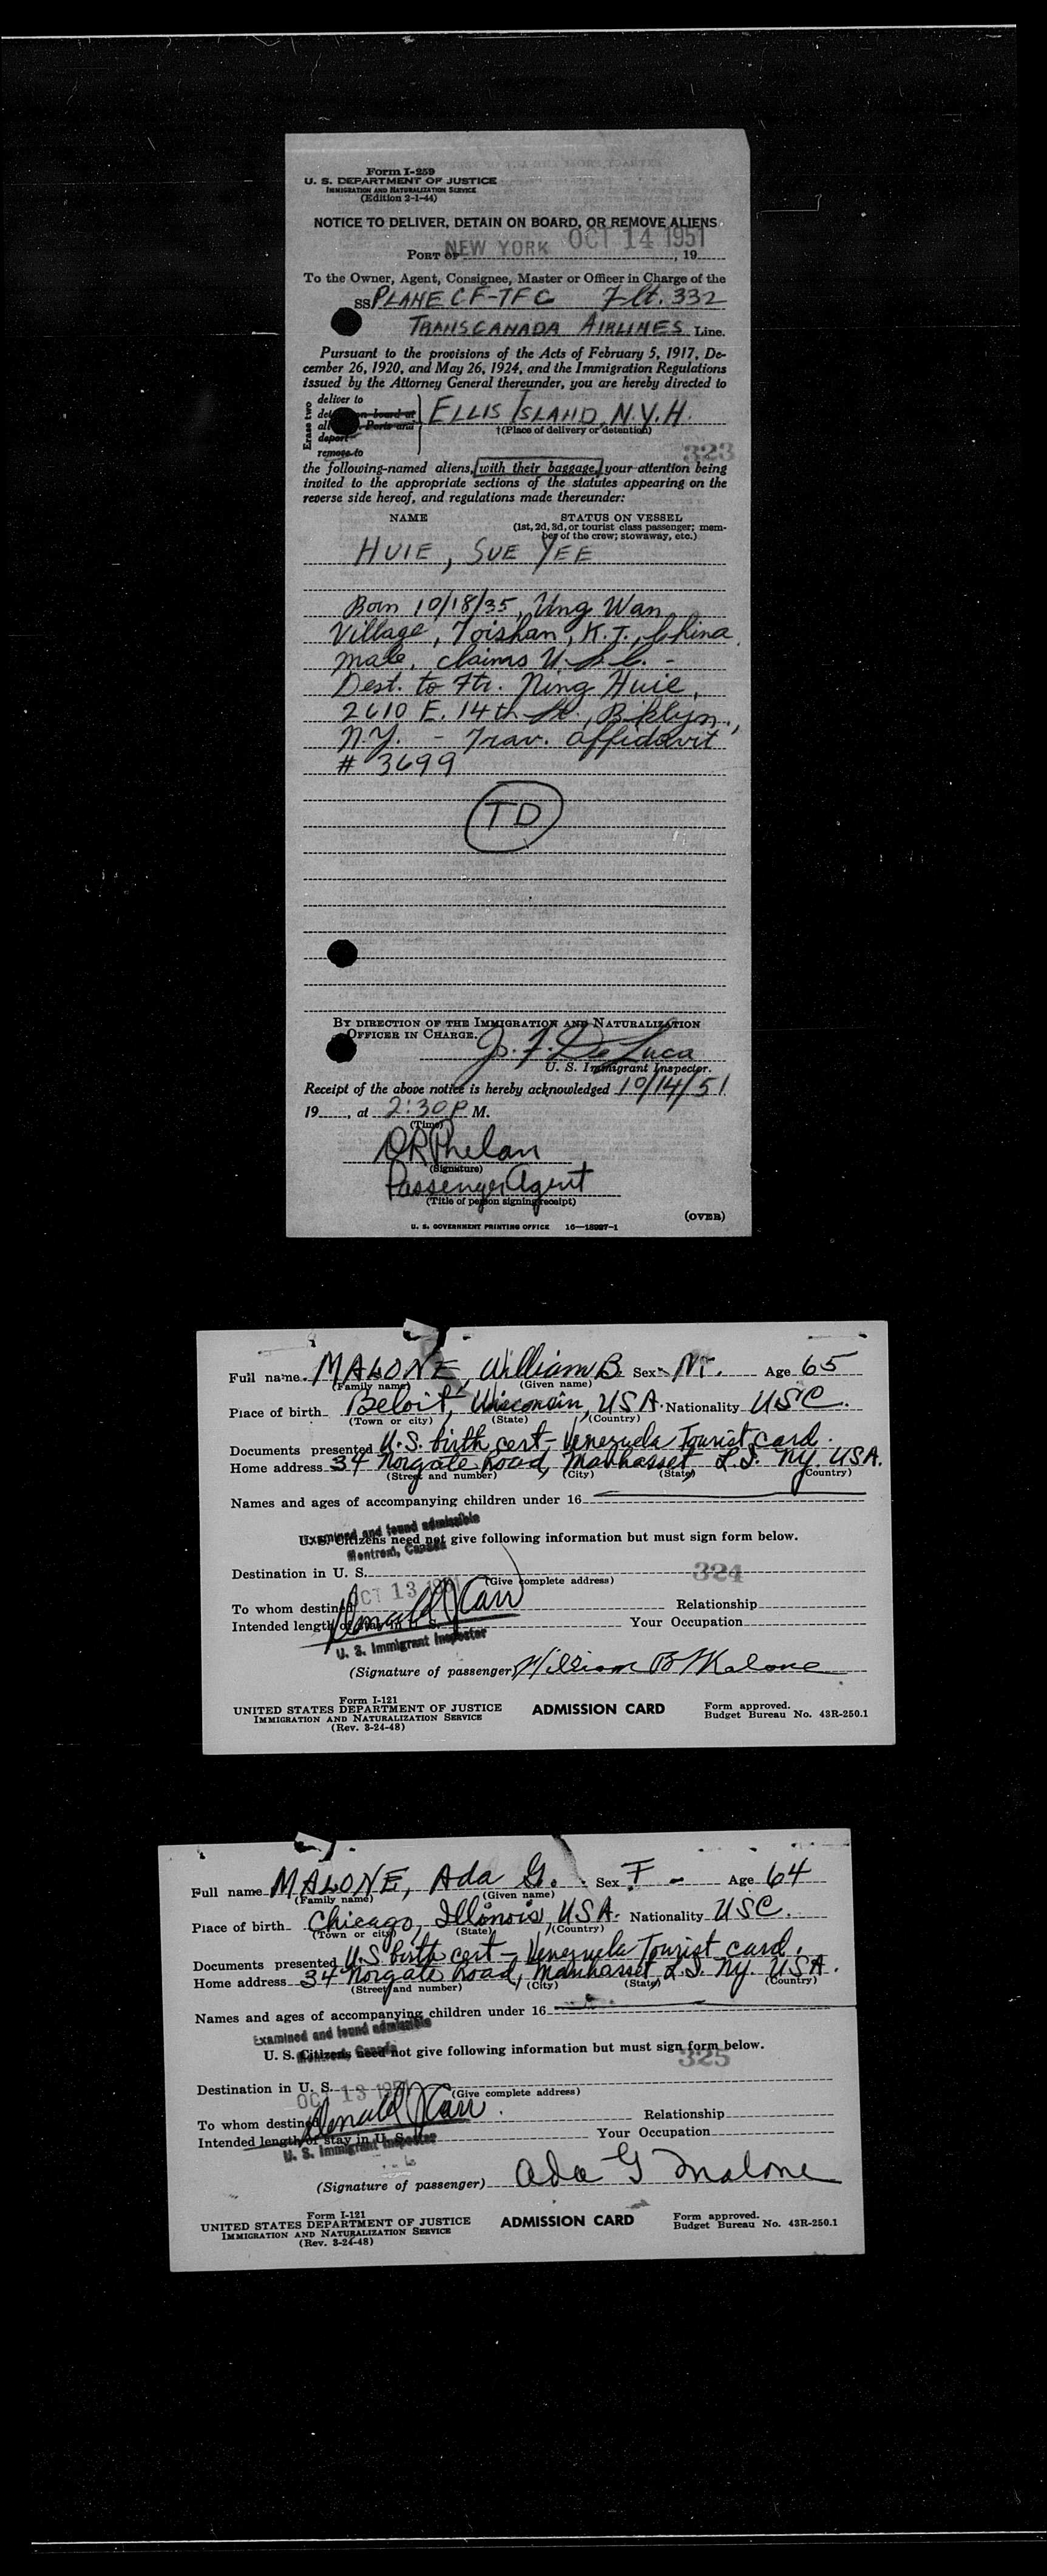 Form I-259
U. S. DEPARTMENT OF JUSTICE
IMMIGRATION AND NATURALIZATION SERVICE
(Edition 2-1-44)
NOTICE TO DELIVER, DETAIN ON BOARD, OR REMOVE ALIENS
PORT OF NEW YORK OCT 14 1951, 19
To the Owner, Agent, Consignee, Master or Officer in Charge of the
SS PLANE CF-TFC Flt. 332
TRANSCANADA AIRLINES Line.
Pursuant to the provisions of the Acts of February 5, 1917, De-
cember 26, 1920, and May 26, 1924, and the Immigration Regulations
issued by the Attorney General thereunder, you are hereby directed to
Erase two
deliver to
on board at
Ports and
deport
remove to
ELLIS ISLAND, N.Y.H.
†(Place of delivery or detention)
323
the following-named aliens, with their baggage, your attention being
invited to the appropriate sections of the statutes appearing on the
reverse side hereof, and regulations made thereunder:
NAME STATUS ON VESSEL
(1st, 2d, 3d, or tourist class passenger; mem-
ber of the crew; stowaway, etc.)
HUIE, SUE YEE
Born 10/18/35, Ung Wan
Village, Toishan, K.T., China
male, claims U.S.C. -
Dest. to Ftr. Ning Huie,
2610 E. 14th St., Bklyn.,
N.Y. - Trav. affidavit
# 3699
TD
BY DIRECTION OF THE IMMIGRATION AND NATURALIZATION
OFFICER IN CHARGE.
J. F. De Luca
U. S. Immigrant Inspector.
Receipt of the above notice is hereby acknowledged 10/14/51
19, at 2:30 P M.
(Time)
DR Phelan
(Signature)
Passenger Agent
(Title of person signing receipt)
(OVER)
U. S. GOVERNMENT PRINTING OFFICE 16—18997-1
Full name MALONE, William B. Sex M. Age 65
(Family name) (Given name)
Place of birth Beloit, Wisconsin, USA. Nationality USC.
(Town or city) (State) (Country)
Documents presented U.S. birth cert - Venezuela Tourist card.
Home address 34 Norgate Road, Manhasset L.I. NY. USA.
(Street and number) (City) (State) (Country)
Names and ages of accompanying children under 16
Examined and found admissible
U. S. Citizens need not give following information but must sign form below.
Montreal, Canada
Destination in U. S. 324
(Give complete address)
OCT 13 1951
To whom destined Donald J Carr Relationship
Intended length of stay in U. S. Your Occupation
U. S. Immigrant Inspector
(Signature of passenger) William B Malone
Form I-121
UNITED STATES DEPARTMENT OF JUSTICE
IMMIGRATION AND NATURALIZATION SERVICE
(Rev. 3-24-48)
ADMISSION CARD
Form approved.
Budget Bureau No. 43R-250.1
Full name MALONE, Ada G. Sex F - Age 64
(Family name) (Given name)
Place of birth Chicago, Illinois, USA. Nationality USC.
(Town or city) (State) (Country)
Documents presented U.S. birth cert - Venezuela Tourist card.
Home address 34 Norgate Road, Manhasset L.I. NY. USA.
(Street and number) (City) (State) (Country)
Names and ages of accompanying children under 16
Examined and found admissible
U. S. Citizens need not give following information but must sign form below.
Montreal, Canada
325
Destination in U. S.
OCT 13 1951
(Give complete address)
To whom destined Donald J Carr Relationship
Intended length of stay in U. S. Your Occupation
U. S. Immigrant Inspector
(Signature of passenger) Ada G Malone
Form I-121
UNITED STATES DEPARTMENT OF JUSTICE
IMMIGRATION AND NATURALIZATION SERVICE
(Rev. 3-24-48)
ADMISSION CARD
Form approved.
Budget Bureau No. 43R-250.1